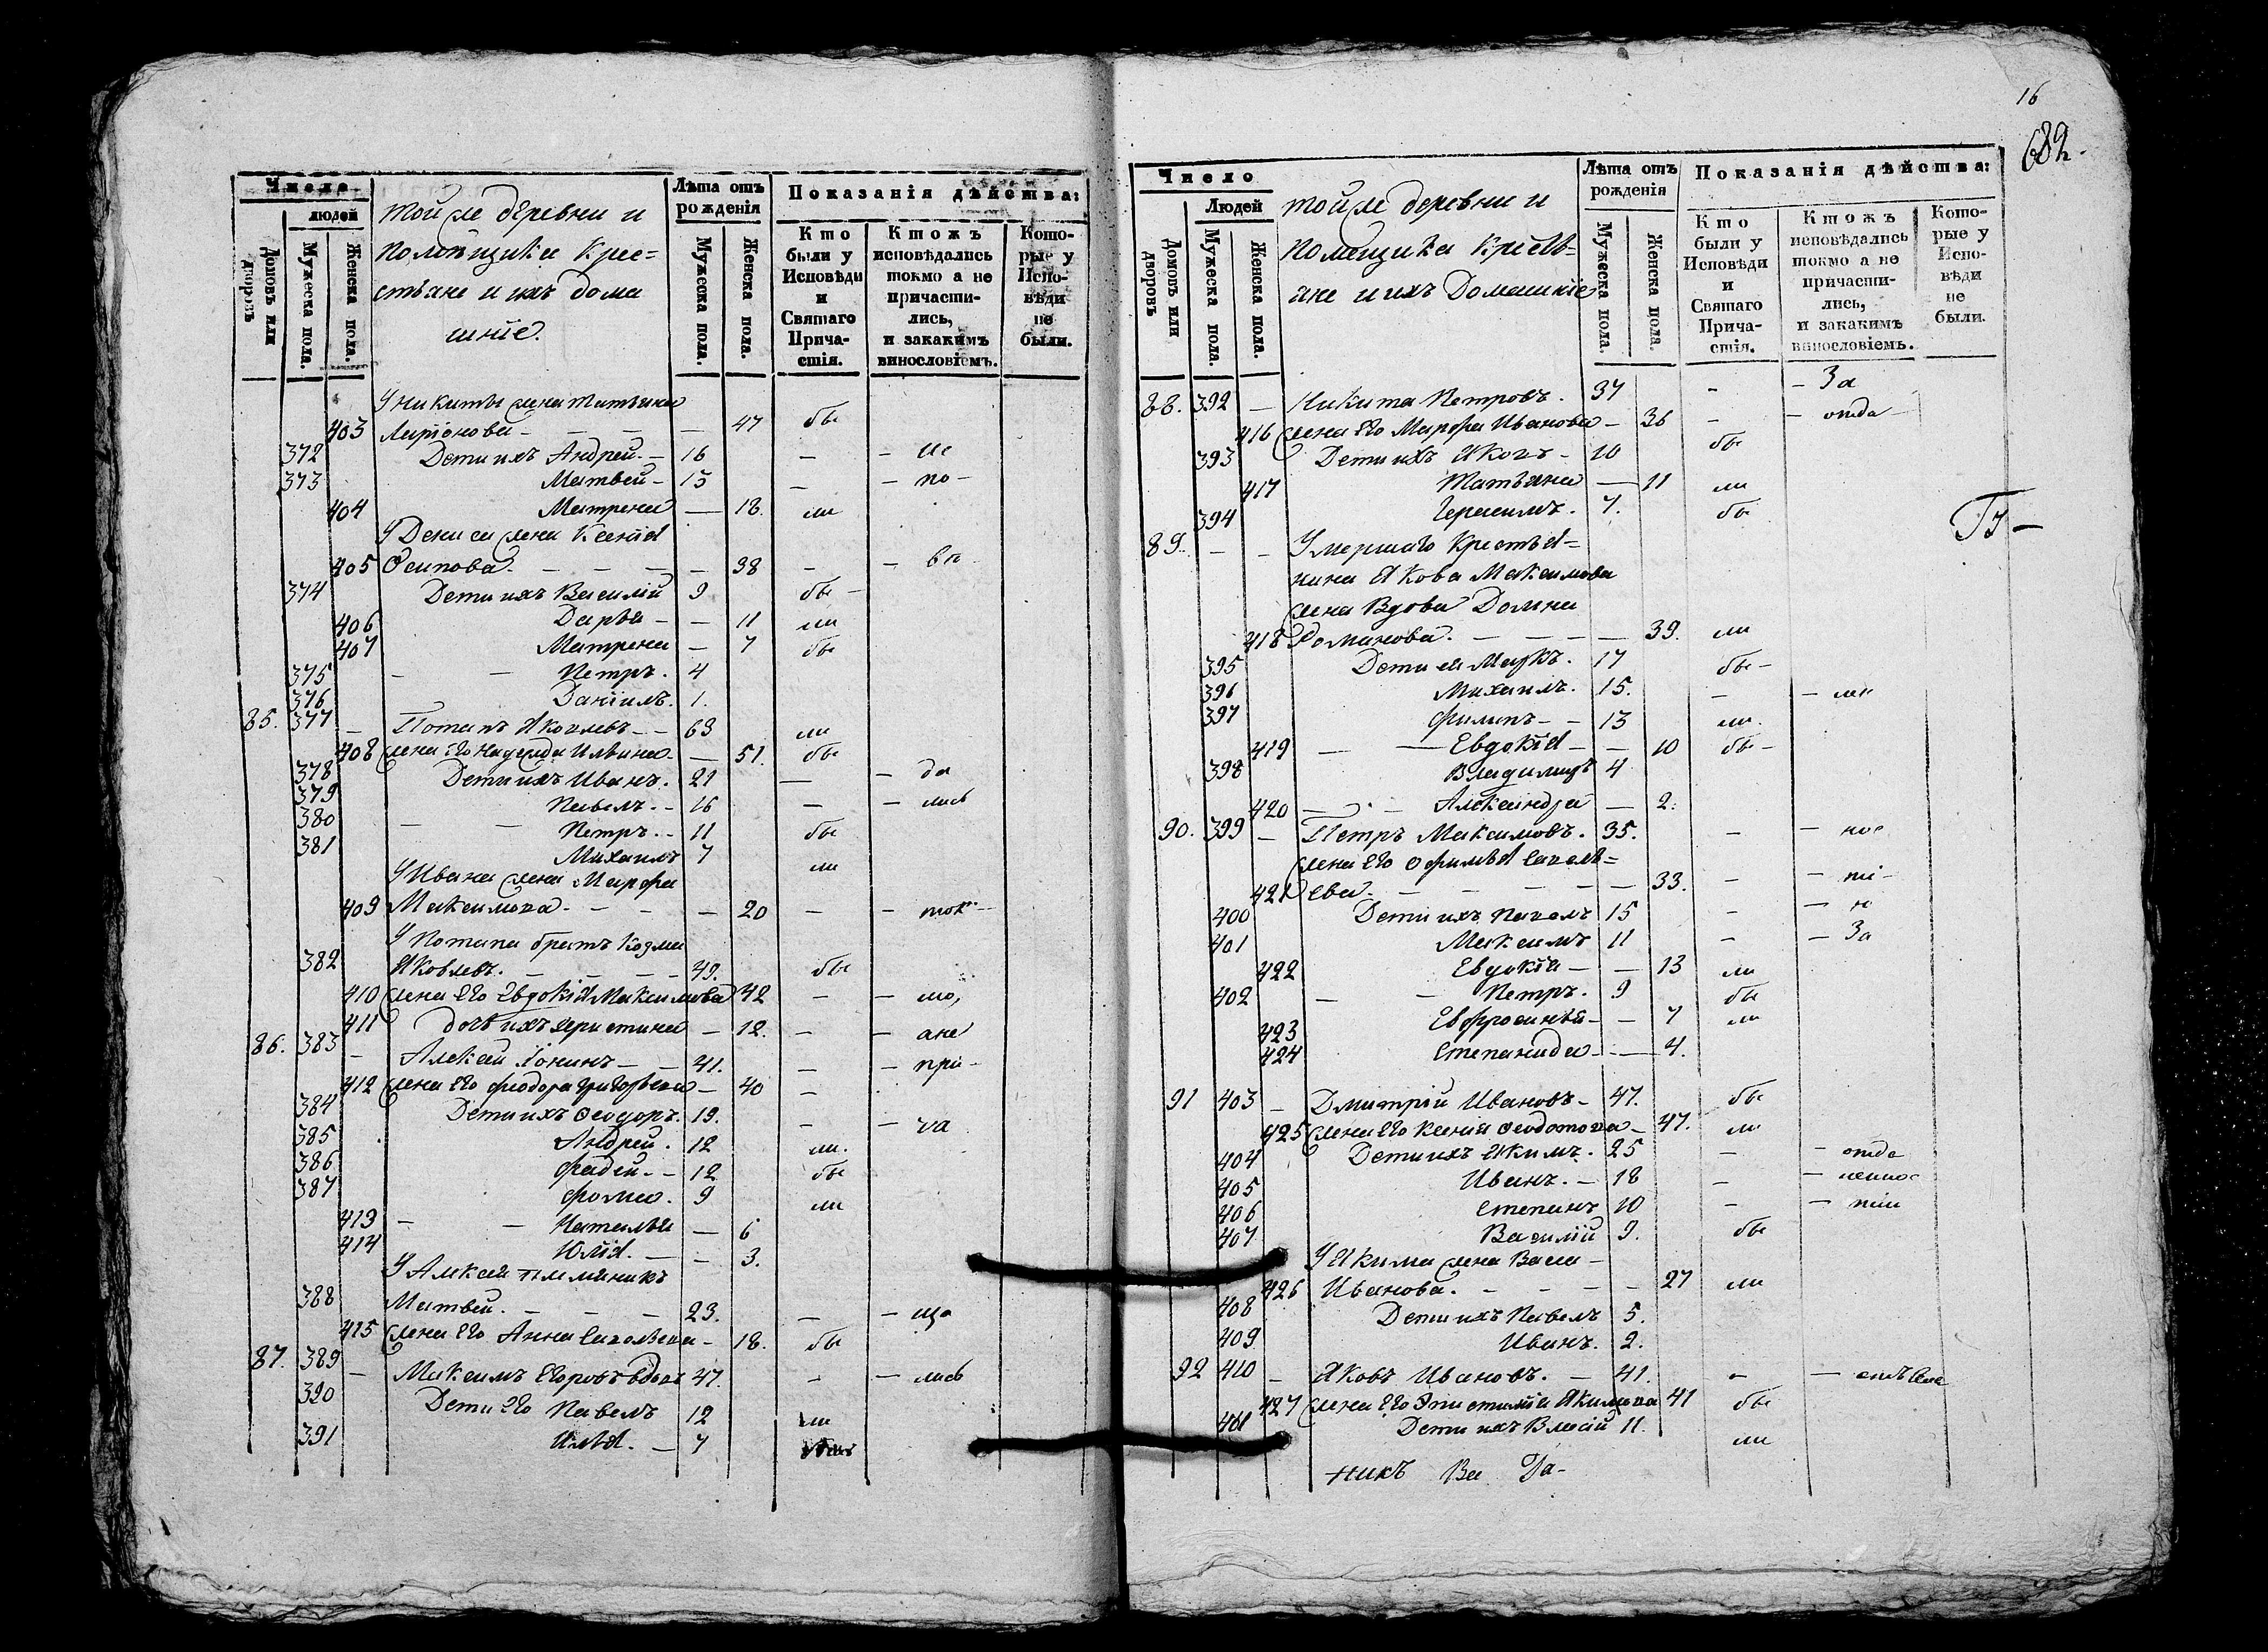 Число
людей
Домовъ или дворовъ
Мужеска пола.
Женска пола.
тойже деревни и
помѣщика крес=
стьяне и ихъ дома
шніе.
Лѣта отъ рожденія
Мужеска пола.
Женска пола.
Показанія дѣйства:
Кто были у Исповѣди и Святаго Причастія.
Ктожъ исповѣдались токмо а не причастились, и закакимъ винословіемъ.
Которые у Исповѣди не были.
У никиты жена татьяна
403 Ларіонова - - - - 47 бы
372 Дети ихъ Андрей. - 16 - - не
373 Матвей - 15 - - по -
404 Матрена - 18. ли
У Дениса жена Ксенія
405 Осипова. - - - - 38 - -
374 Дети ихъ Василій 9 бы -
406 Дарья - - 11 ли
407 Матрена - 7 бы
375 - - Петръ. 4
376 Даніилъ. 1.
85. 377 - Потапъ Яковлевъ - - 63 ли
408 жена его надежда Ильина - - 51. бы
378 Дети ихъ Иванъ. 21 - - да
379 Павелъ. - 16 - - лись
380 - - Петръ. - 11 бы
381 Михаилъ 7 ли
У Ивана жена Марфа
409 Максимова. - - - 20 - - ток -
У Потапа братъ Козма
382 Яковлевъ. - - - - 49. бы
410 жена его Евдокія Максимова 42 - - мо,
411 дочь ихъ христина - 12. - - ане
86. 383 - Алексей Іонинъ - - 41. - - при -
412 жена его феодора григорьева - 40 -
384 Дети ихъ Феодоръ. 19. - - ча
385 Андрей. 12 ли.
386 фадей. - - 12 бы
387 фома. 9 ли
413 - - Наталья - 6
414 Юлія. - - 3.
У Алексея племяникъ
388 Матвей. - - - 23. - - ща
415 жена его Анна савельева - 18. бы
87. 389 - Максимъ Егоровъ вдовъ 47. - - лись
390 Дети его Павелъ 12 ли
391 Илья. - 7
16
682.
Число
Людей
Домовъ или дворовъ
Мужеска пола.
Женска пола.
тойже деревни и
помещика кресть-
яне и ихъ Домашніе
Лѣта отъ рожденія
Мужеска пола.
Женска пола.
Показанія дѣйства:
Кто были у Исповѣди и Святаго Причастія.
Ктожъ исповѣдались токмо а не причастились, и закакимъ винословіемъ.
Которые у Исповѣди не были.
88. 392 - Никита Петровъ. 37 - - За
416 жена его Марфа Иванова - 36 - - отда
393 Дети ихъ Яковъ - 10 бы
417 Татьяна - 11 ли
394 Герасимъ. 7. бы
89. - - Умершаго Крестья=
нина Якова Максимова
жена Вдова Домна
418 Романова. - - - - 39. ли
395 Дети ея Маркъ. 17 бы -
396 Михаилъ. 15. - - лен
397 филипъ - - 13 ли.
419 - - Евдокія - - 10 бы -
398 Владимиръ 4
420 - - Александра - 2.
90. 399 - Петръ Максимовъ. 35. - - нос
жена его Офимья савель=
421 ева. - - - - - 33. - - ті -
400 Дети ихъ Павелъ 15 - - ю
401 Максимъ 11 - - За
422 Евдокія - - 13 ли
402 - - Петръ. 9 бы
423 Евфросинья - - 7 ли
424 Степанида - - 4.
91 403 - Дмитрій Ивановъ - 47. бы
425 жена его Ксенія Федотова - 47. ли
404 Дети ихъ Якимъ. 25 - - отда
405 Иванъ. - 18 - - леннос
406 Степанъ 10 - - тіи
407 Василій 9. бы
У Якима жена Васса -
426 Иванова. - - - - 27 ли
408 Дети ихъ Павелъ 5.
409 Иванъ. 2.
92 410 - Яковъ Ивановъ. - 41. - - отъ села
427 жена его Эпистимія Якимова 41 бы
411 Дети ихъ Власій 11. ли
никъ Ва Га-